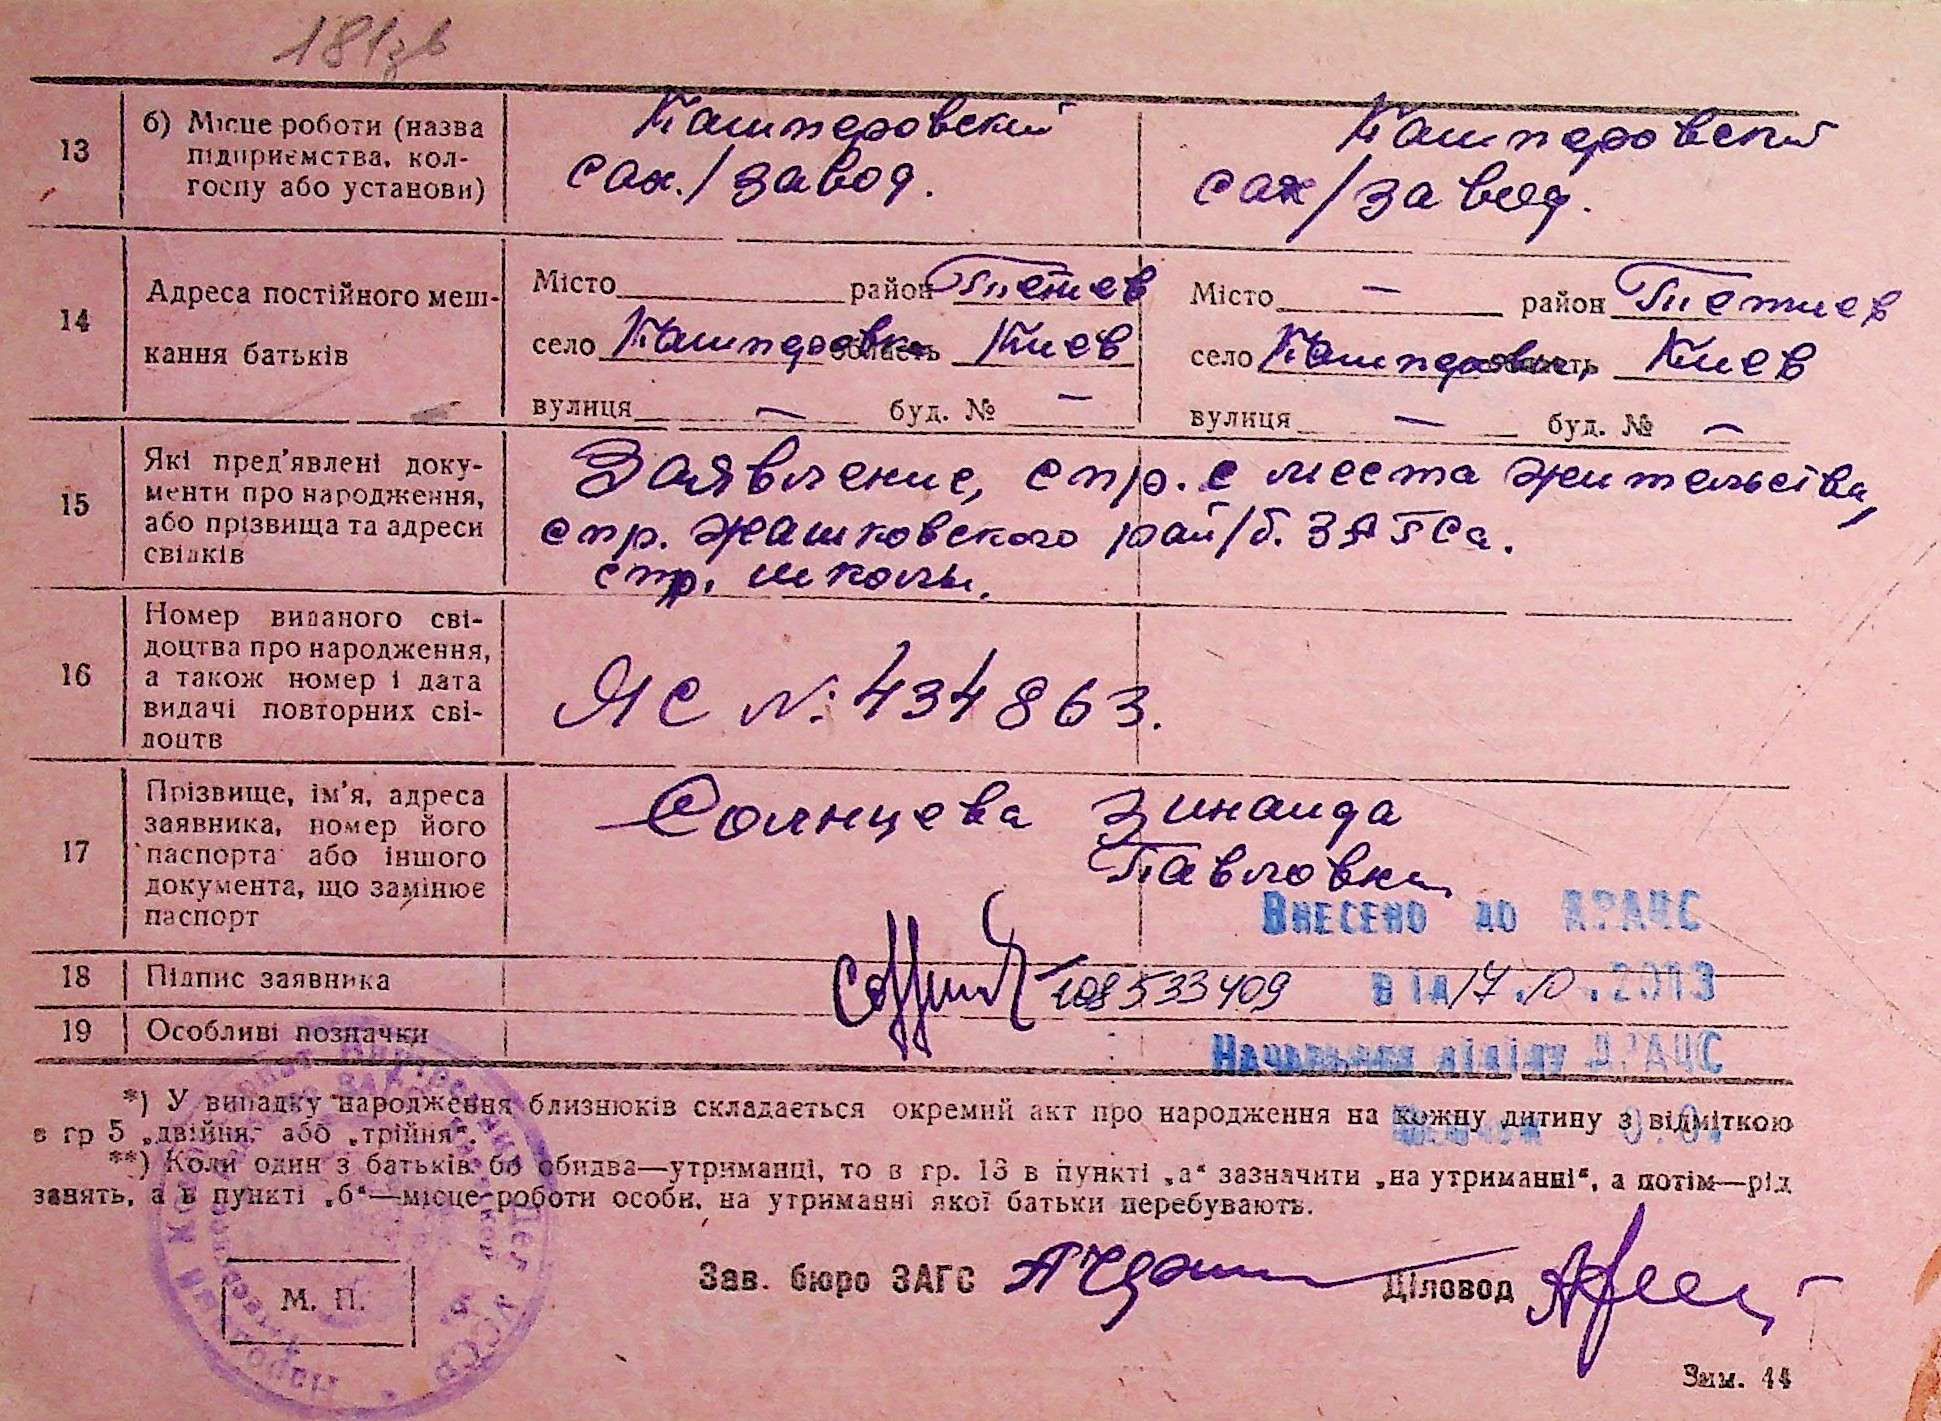 181зв
13
б) Місце роботи (назва
підприємства, кол-
госпу або установи)
Кашперовский
сах./завод.
Кашперовский
сах/завод.
14
Адреса постійного меш-
кання батьків
Місто район Тетиев
село Кашперовка область Киев
вулиця — буд. № —
Місто — район Тетиев
село Кашперовка, область Киев
вулиця — буд. № —
15
Які пред'явлені доку-
менти про народження,
або прізвища та адреси
свідків
Заявление, спр. с места жительства,
спр. Жашковского рай/б. ЗАГСа.
спр. школы.
16
Номер виданого сві-
доцтва про народження,
а також номер і дата
видачі повторних сві-
доцтв
ЯС №: 434863.
17
Прізвище, ім'я, адреса
заявника, номер його
паспорта або іншого
документа, що замінює
паспорт
Солнцева Зинаида
Павловна
Внесено до ДРАЦС
18
Підпис заявника
108533409
від 17.10.2013
19
Особливі позначки
Начальник відділу ДРАЦС
*) У випадку народження близнюків складається окремий акт про народження на кожну дитину з відміткою
в гр 5 „двійня" або „трійня".
**) Коли один з батьків бо обидва—утриманці, то в гр. 13 в пункті „а" зазначити „на утриманні", а потім—рід
занять, а в пункті „б"—місце роботи особи, на утриманні якої батьки перебувають.
М. П.
Зав. бюро ЗАГС
Діловод
Зам. 44